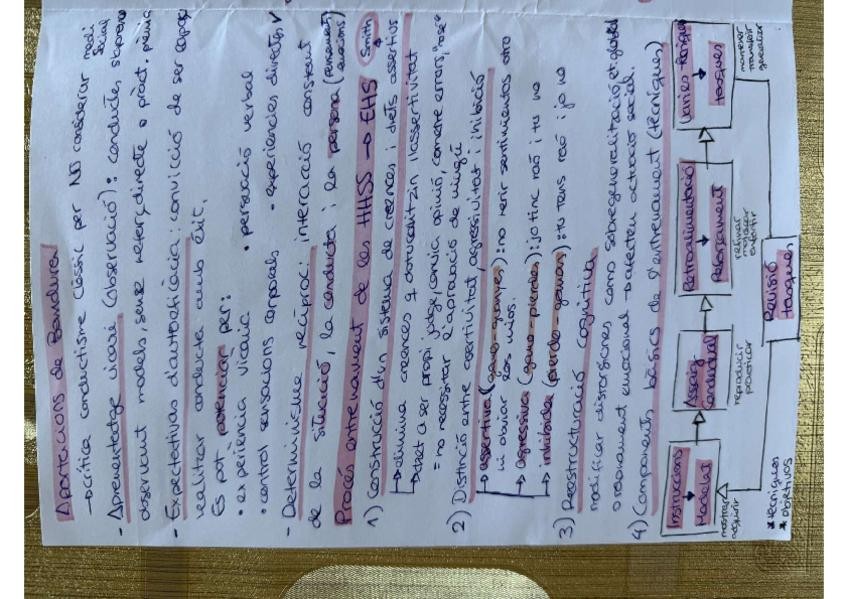 Aportacions de Bandura
→ crítica conductisme clàssic per NO considerar medi social
- Aprenentatge vicari (observació): conductes s'aprenen
observant models, sense reforç directe o pràct. prèvia
- Expectatives d'autoeficàcia: convicció de ser capaç
realitzar conducta amb èxit.
Es pot potenciar per:
• experiència vicària • persuació verbal
• control sensacions corporals • experiències directes
- Determinisme recíproc: interacció constant
de la situació, la conducta i la persona (pensament emocions)
Procés entrenament de les HHSS → EHS Smith
1) Construcció d'un sistema de creences i drets assertius
→ elimina creences q obstaculitzin l'assertivitat
→ dret a ser propi jutge, canvia opinió, cometre errors,
= no necessitar l'aprovació de ningú
2) Distinció entre asertivitat, agressivitat i inhibició
→ assertiva (gano-ganas): no herir sentimientos otro
ni obviar los míos.
→ agressiva (gano-pierdes): jo tinc raó i tu no
→ inhibida (pierdo-ganas): tu tens raó i jo no
3) Reestructuració cognitiva
modificar distorsiones como sobregeneralitzacio, et. global
o raonament emocional → afecten actuació social.
4) Components bàsics de l'entrenament (tècniques)
Instruccions → Modelat
mostrar adquirir
Assaig conductual
reproducir practicar
Retroalimentació → Reforçament
refinar
Varies tasques
mantener transferir generalizar
Revisió tasques
* tècniques
* objetivos